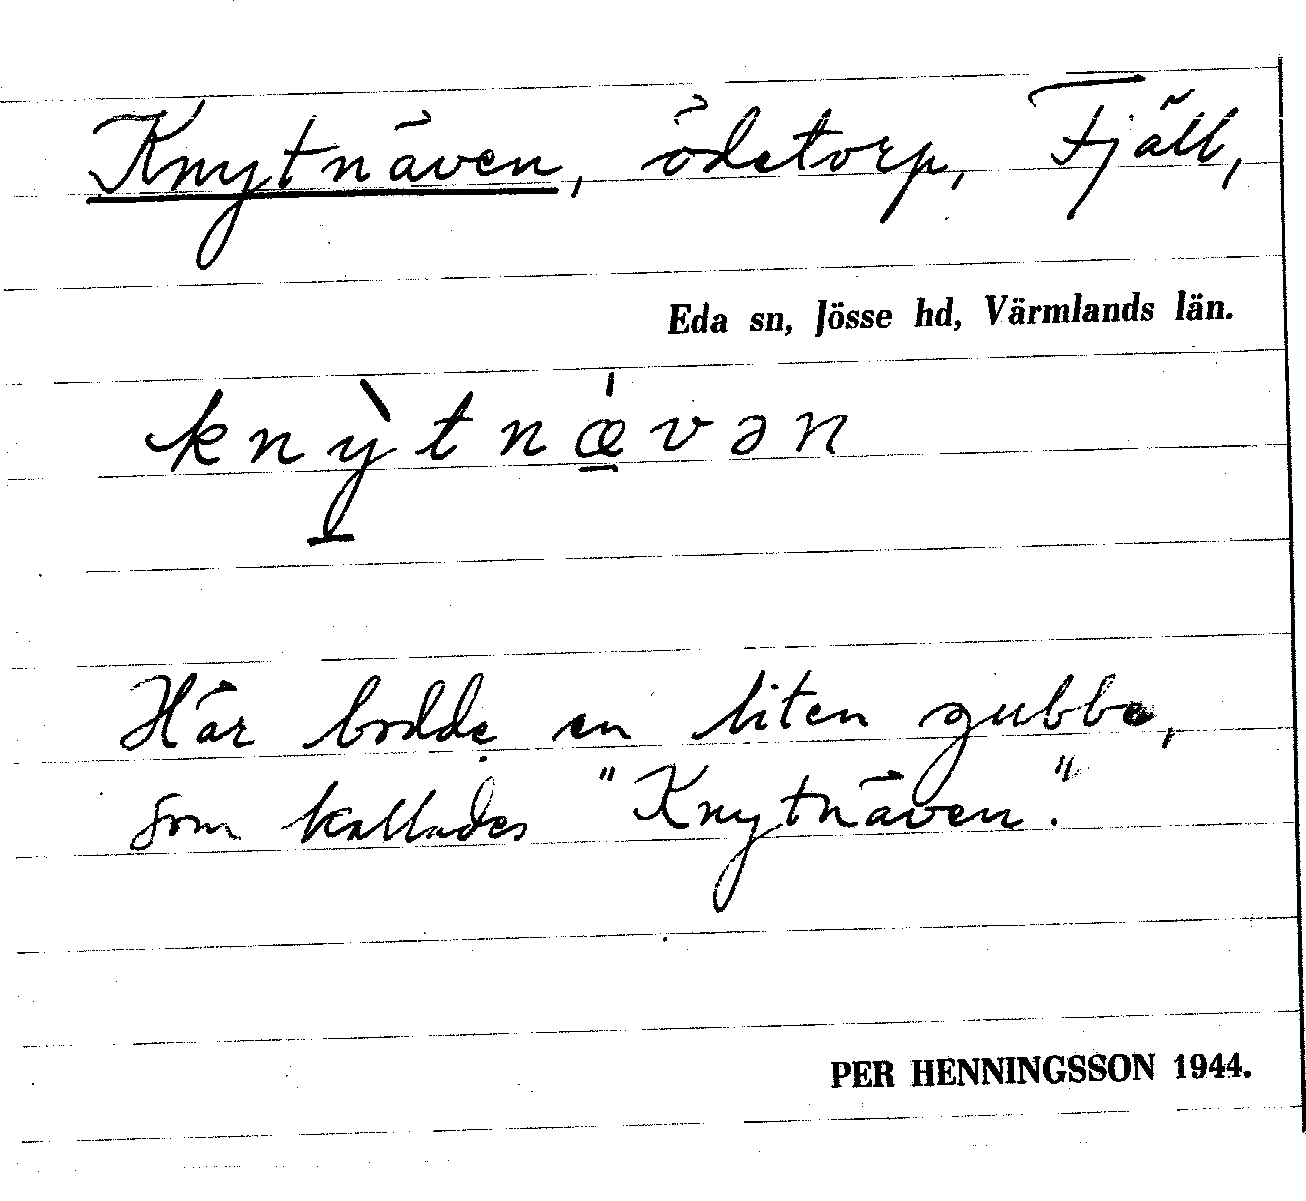 Knytnäven, ödetorp, Fjäll,
Eda sn, Jösse hd, Värmlands län.
knỳ̱tnœ̱́vən
Här bodde en liten gubbe,
som kallades "Knytnäven".
PER HENNINGSSON 1944.